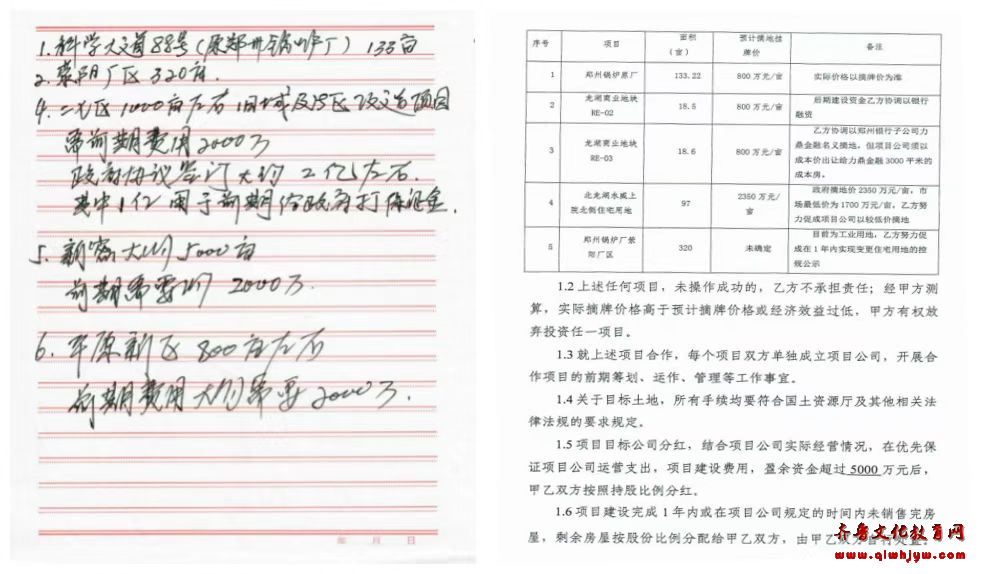 1. 科学大道88号(原郑州锅炉厂) 133亩
2. 荥阳厂区 320亩.
4. 二七区1000亩左右 旧城及旧区改造项目
需前期费用2000万
政府协议签订大约2亿左右.
其中1亿用于前期给政府打保证金.
5. 新密大约5000亩
前期需要约 2000万.
6. 平原新区 800亩左右
前期费用大约需要2000万.
序号 项目 面积（亩） 预计摘地挂牌价 备注
1 郑州锅炉原厂 133.22 800 万元/亩 实际价格以摘牌价为准
2 龙湖商业地块 RE-02 18.5 800 万元/亩 后期建设资金乙方协调以银行融资
3 龙湖商业地块 RE-03 18.6 800 万元/亩 乙方协调以郑州银行子公司力鼎金融名义摘地，但项目公司须以成本价出让给力鼎金融 3000 平米的成本房。
4 北龙湖永威上院北侧住宅用地 97 2350 万元/亩 政府摘地价 2350 万元/亩，市场最低价为 1700 万元/亩，乙方努力促成项目公司以较低价摘地
5 郑州锅炉厂荥阳厂区 320 未确定 目前为工业用地，乙方努力促成在 1 年内实现变更住宅用地的控规公示
1.2 上述任何项目，未操作成功的，乙方不承担责任；经甲方测
算，实际摘牌价格高于预计摘牌价格或经济效益过低，甲方有权放
弃投资任一项目。
1.3 就上述项目合作，每个项目双方单独成立项目公司，开展合
作项目的前期筹划、运作、管理等工作事宜。
1.4 关于目标土地，所有手续均要符合国土资源厅及其他相关法
律法规的要求规定。
1.5 项目目标公司分红，结合项目公司实际经营情况，在优先保
证项目公司运营支出，项目建设费用，盈余资金超过 5000 万元后，
甲乙双方按照持股比例分红。
1.6 项目建设完成 1 年内或在项目公司规定的时间内未销售完房
屋，剩余房屋按股份比例分配给甲乙双方，由甲乙双方自行处置。
年 月 日
齐鲁文化教育网
www.qlwhjyw.com